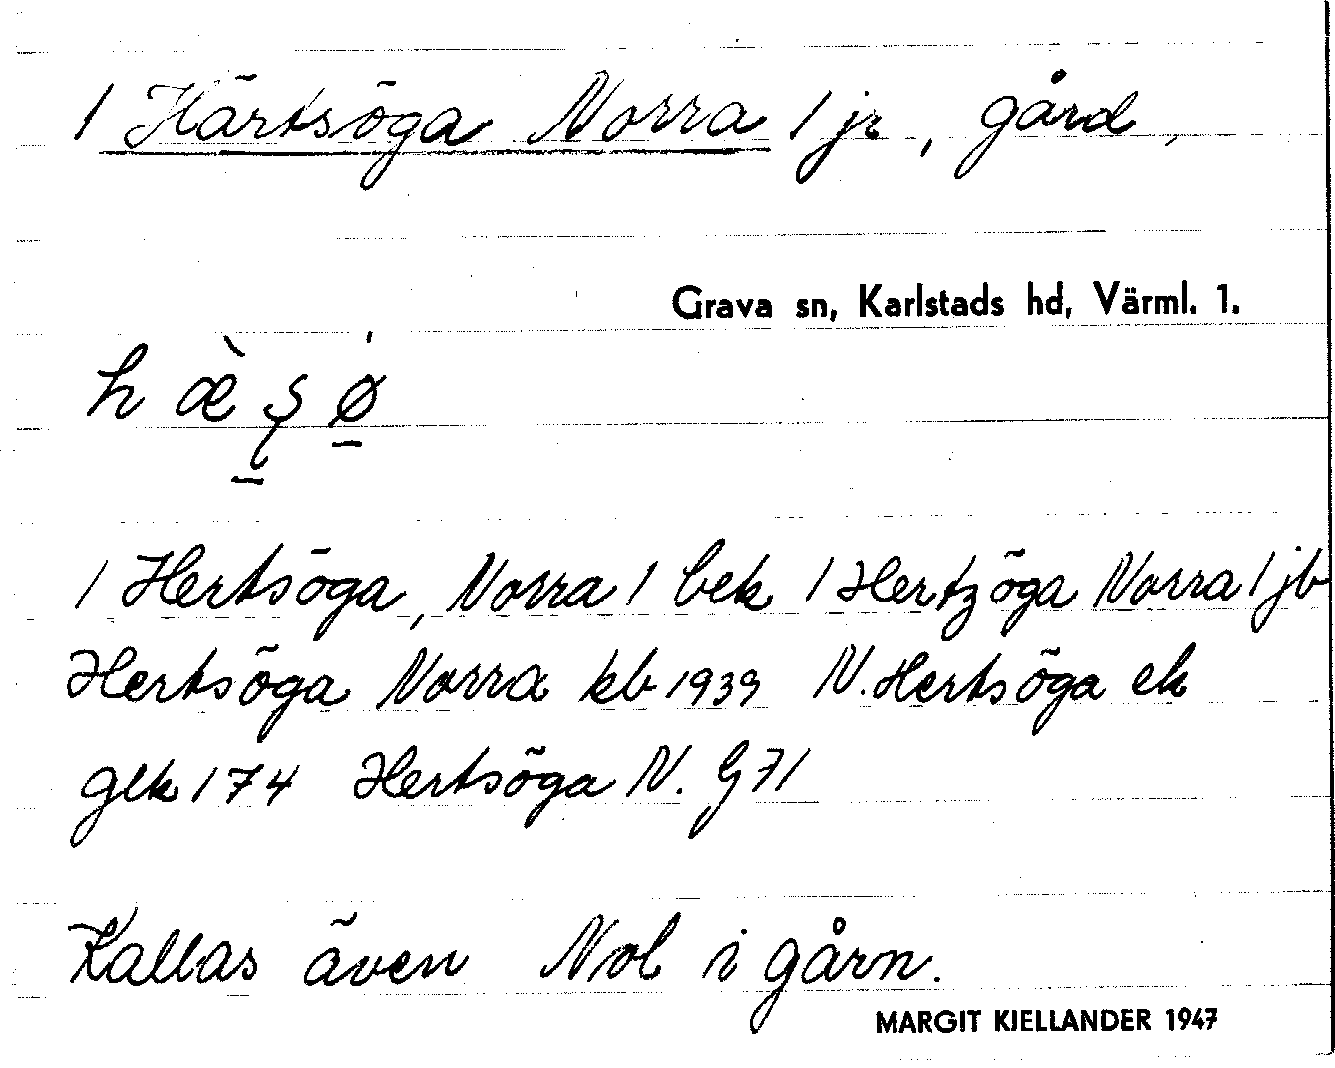 / Härtsöga Norra / jr, gård,
Grava sn, Karlstads hd, Värml. 1.
/ Hertsöga, Norra / bek / Hertzöga Norra / jb
Hertsöga Norra kb 1939 N. Hertsöga ek
glk 174 Hertsöga N. G 71
Kallas även Nol i gårn.
MARGIT KJELLANDER 1947